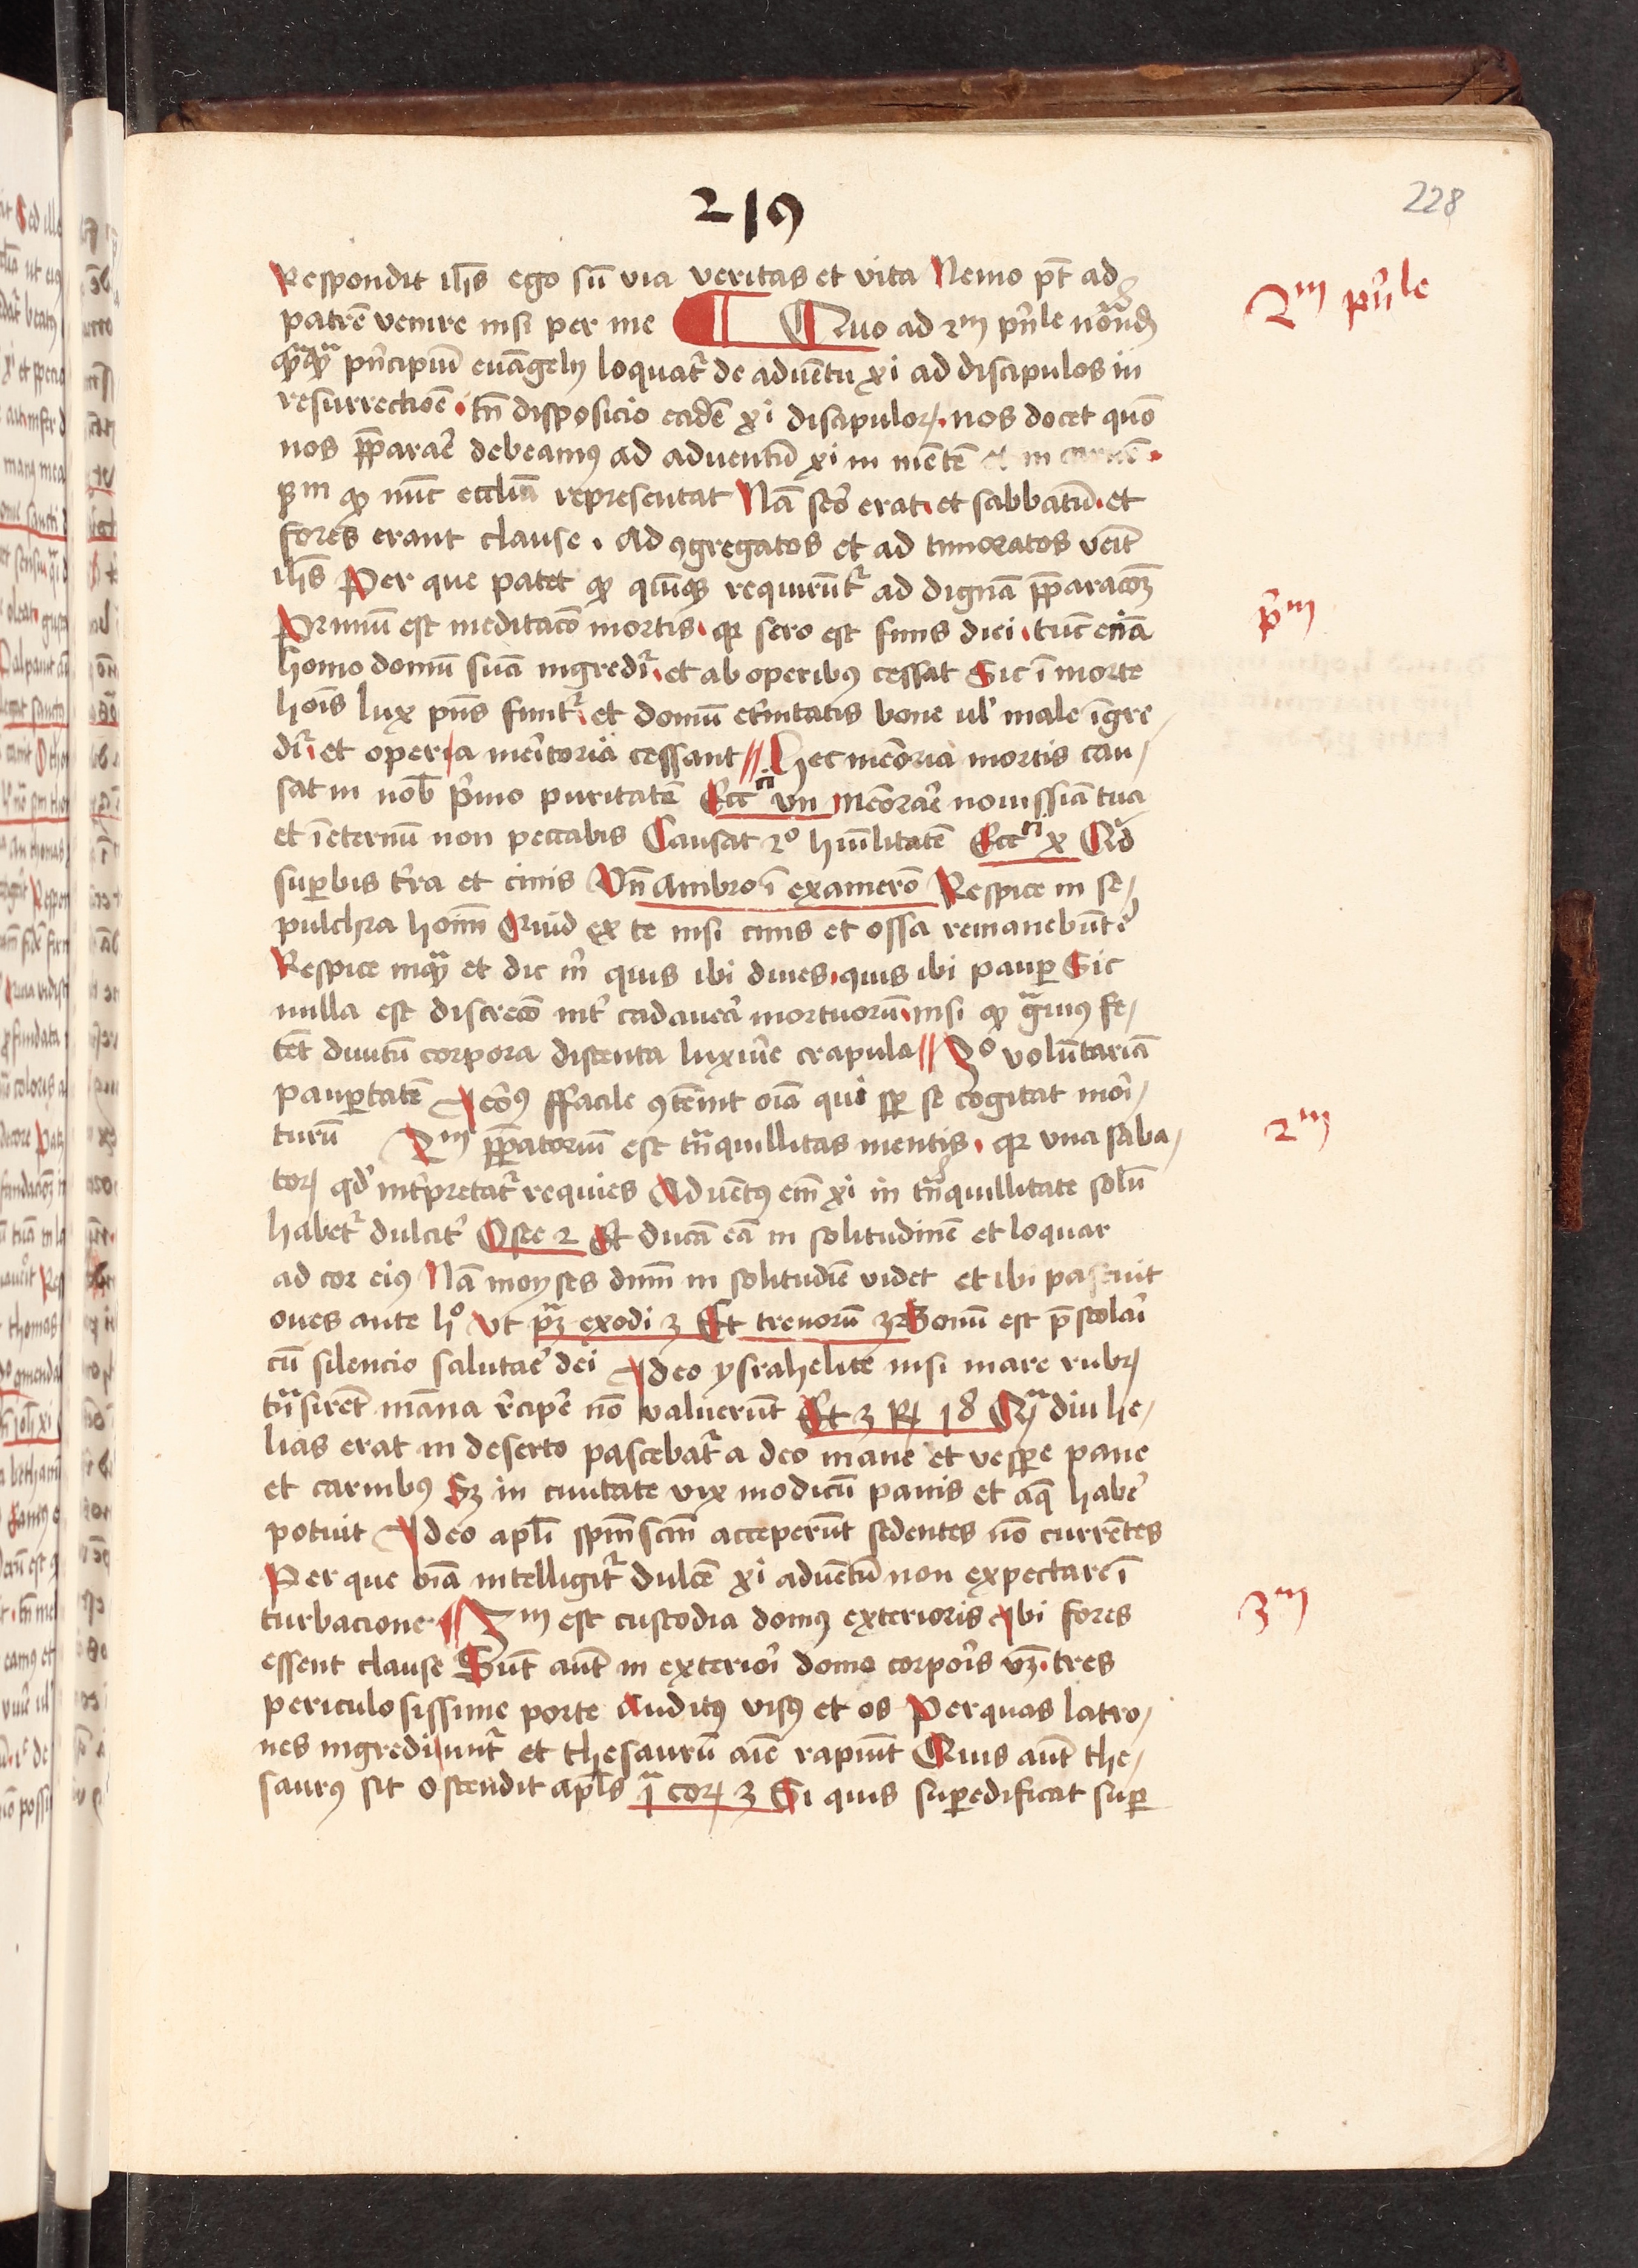 219
228
Respondit ih̄s ego sū via veritas et vita Nemo pt̄ ad
patrē venire nisi per me ¶ Quo ad 2m pn̄le notand
quāquā pn̄cipiū euāgelij loquat᷑ de aduētu xi ad discipulos in
resurrectiōe · tn̄ disposicio eadē xi discipuloꝝ · nos docet quō
nos p̄parare debeamꝰ ad aduentū xi in mētē et in carnē ·
ꝑm ꝙ nūc eccliam representat Nā sero erat · et sabbatū · et
fores erant clause · Ad ꝯgregatos et ad timoratos veīt
ih̄s Per que patet ꝙ requirūt᷑ ad dignā p̄paracōꝫ
Primū est meditacō mortis · qꝛ sero est finis diei · tūc etiā
homo domū suā ingredit᷑ · et ab operibꝰ cessat Sic ī morte
hoīs lux pn̄s finit᷑ · et domū et̄nitatis bone ul̓ male īgre/
dit᷑ et opera meritoria cessant // Hec memoria mortis cau/
sat in nob̄ primo puritatē Ecc͞i vii Memorare nouissīa tua
et ī eternū non peccabis Causat 2o hūilitatē Ecc͞i x Quid
suꝑbis t̄ra et cinis Vn̄ Ambro ī examerō Respice in se/
pulchra hoīm Quid ex te nisi cinis et ossa remanebūt
Respice inquā et dic m̄ quis ibi diues · quis ibi pauꝑ Sic
nulla est discrecō int̄ cadauera mortuorū · nisi ꝙ grauiꝰ fe/
tēt diuitū corpora distenta luxurie crapula // 3o volūtariā
pauꝑtatē Jeroꝰ ffacile ꝯtēnit oīa qui sꝑ se cogitat mori/
turū 2m p̄ꝑatoriū est trāquillitas mentis · qꝛ vna saba/
toꝝ qd̓ int̓pretat᷑ requies Aduētꝰ em̄ xi in trāquillitate solū
habet᷑ dulcit̓ Osee 2 Et ducā eā in solitudinē et loquar
ad cor eiꝰ Nā moyses dnm̄ in solitudīe videt et ibi pascuit
oues ante ho vt pꝫ exodi 3 Et trenorū 3 Bonū est p̄stolari
cū silencio salutare dei Jdeo ysrahelite nisi mare rubꝝ
trāsirēt māna recipere nō valuerūt Et 3 Rꝝ 18 Quādiu he/
lias erat in deserto pascebat᷑ a deo mane et vespere pane
et carnibꝰ Sꝫ in ciuitate vix modicū panis et aq̄ habere
potuit Jdeo apl̄i spm̄scm̄ acceperūt sedentes nō currētes
Per que oīa intelligit᷑ dulcē xi aduētū non expectare ī
turbacione // 3m est custodia domꝰ exterioris vbi fores
essent clause Sūt aūt in exteriori domo corporis vꝫ · tres
periculosissime porte Auditꝰ visꝰ et os Per quas latro/
nes ingrediunt᷑ et thesaurū aīe rapiūt Quis aūt the/
saurꝰ sit ostendit apl̄s ja coꝝ 3 Si quis suꝑedificat suꝑ
2m pn̄le
pm̄
2m
3m